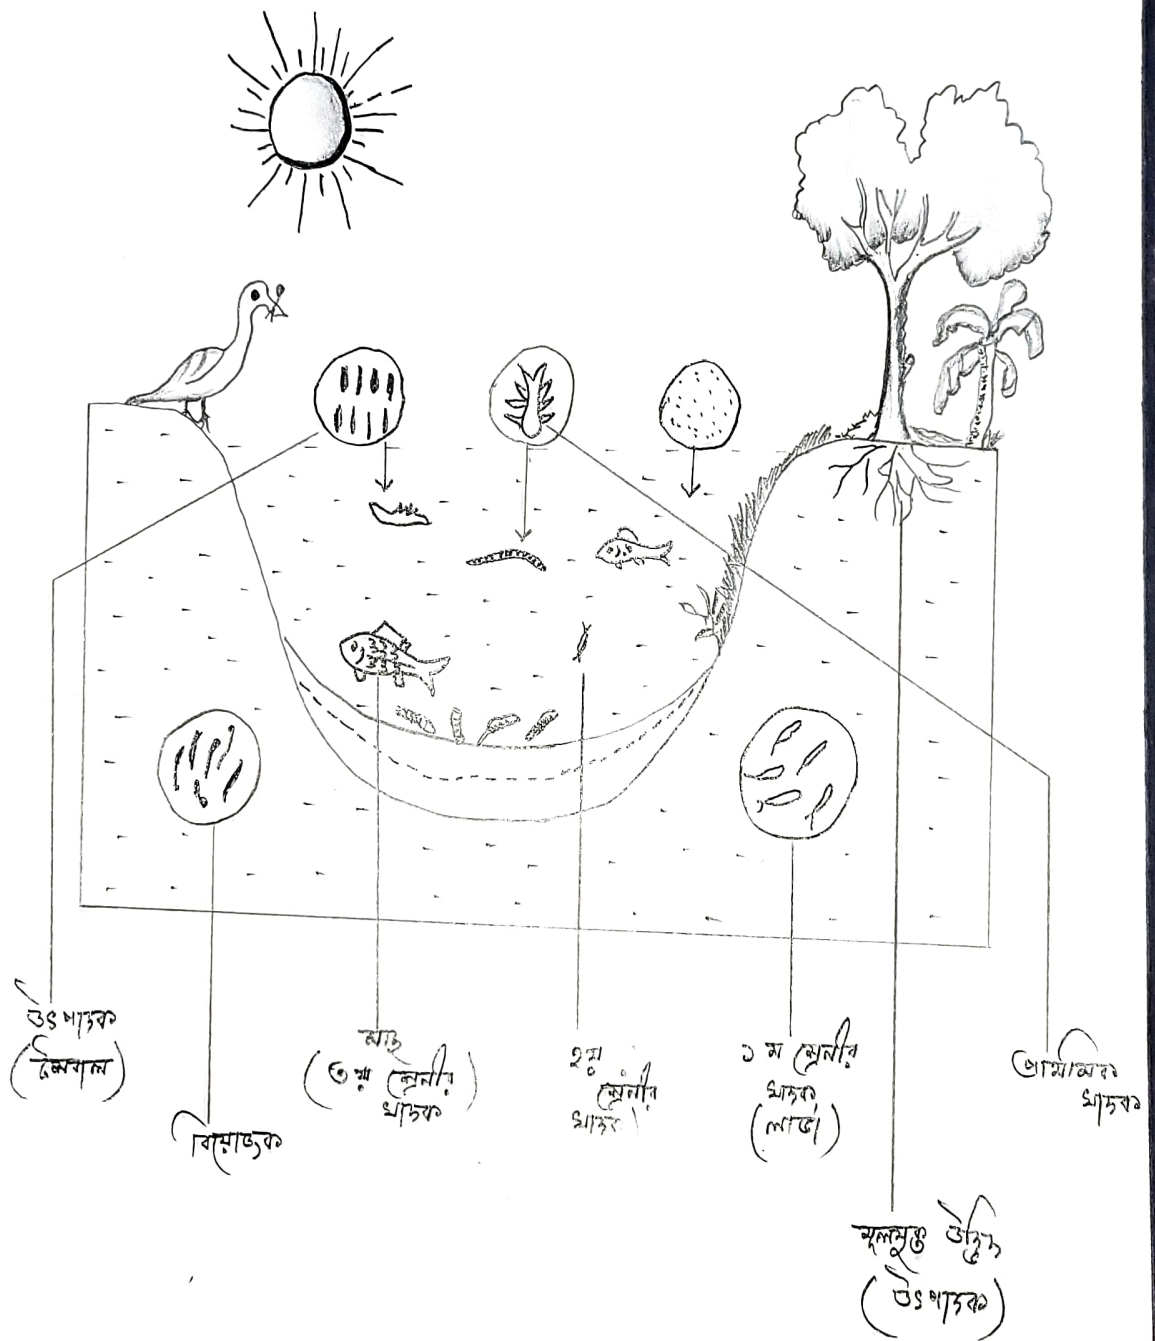 উৎপাদক
(শৈবাল)
বিয়োজক
মাছ
(৩য় শ্রেনীর
খাদক)
২য়
শ্রেনীর
খাদক
১ম শ্রেনীর
খাদক
(লার্ভা)
প্রাথমিক
খাদক
মূলযুক্ত উদ্ভিদ
(উৎপাদক)